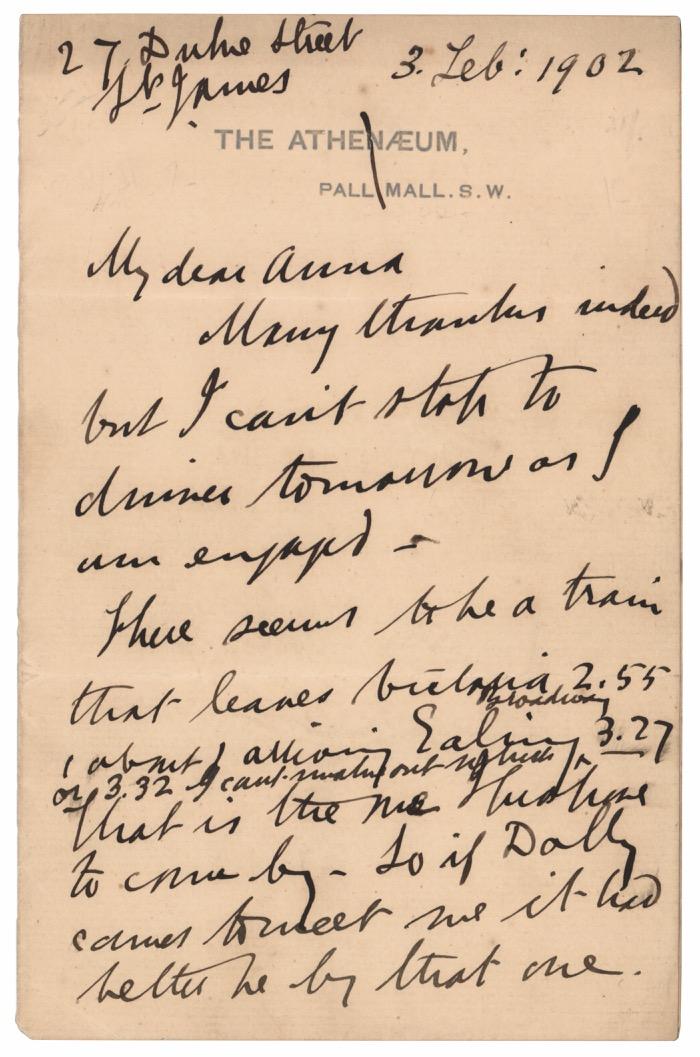 27 Duke Street
St. James
3. Feb: 1902
THE ATHENÆUM,
PALL MALL. S.W.
My dear Anna
Many thanks indeed
but I can't stop to
dinner tomorrow as I
am engaged -
There seems to be a train
that leaves Victoria 2.55
Broadway
(about) arriving Ealing 3.27
or 3.32 I can't make out which
that is the one I purpose
to come by - So if Dolly
comes to meet me it had
better be by that one.